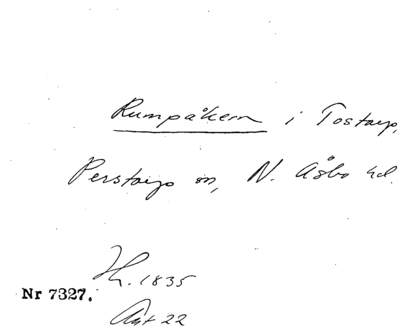 Rumpåkern i Tostarp,
Perstorps sn, N. Åsbo hd.
H. 1835
Nr 7327.
Akt 22